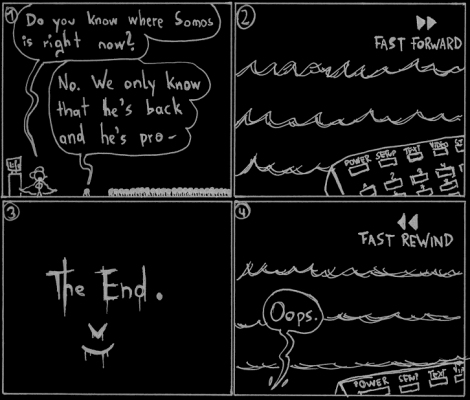 1
Do you know where Somos
is right now?
No. We only know
that he's back
and he's pro-
2
FAST FORWARD
POWER SETUP TEXT VIDEO
3
The End.
4
FAST REWIND
Oops.
POWER SETUP TEXT